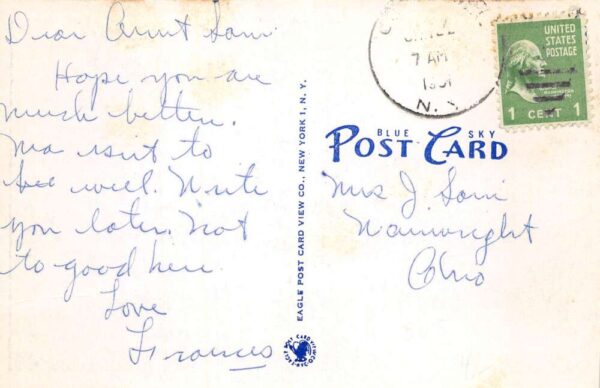 Dear Aunt Sam
Hope you are
much better.
Ma isn't to
well. Write
you later. Not
to good here.
Love
Frances
EAGLE POST CARD VIEW CO., NEW YORK 1, N. Y.
7 AM
1951
N. Y.
UNITED
STATES
POSTAGE
1 CENT 1
BLUE SKY
POST CARD
Mrs J. Sam
Wainwright
Ohio